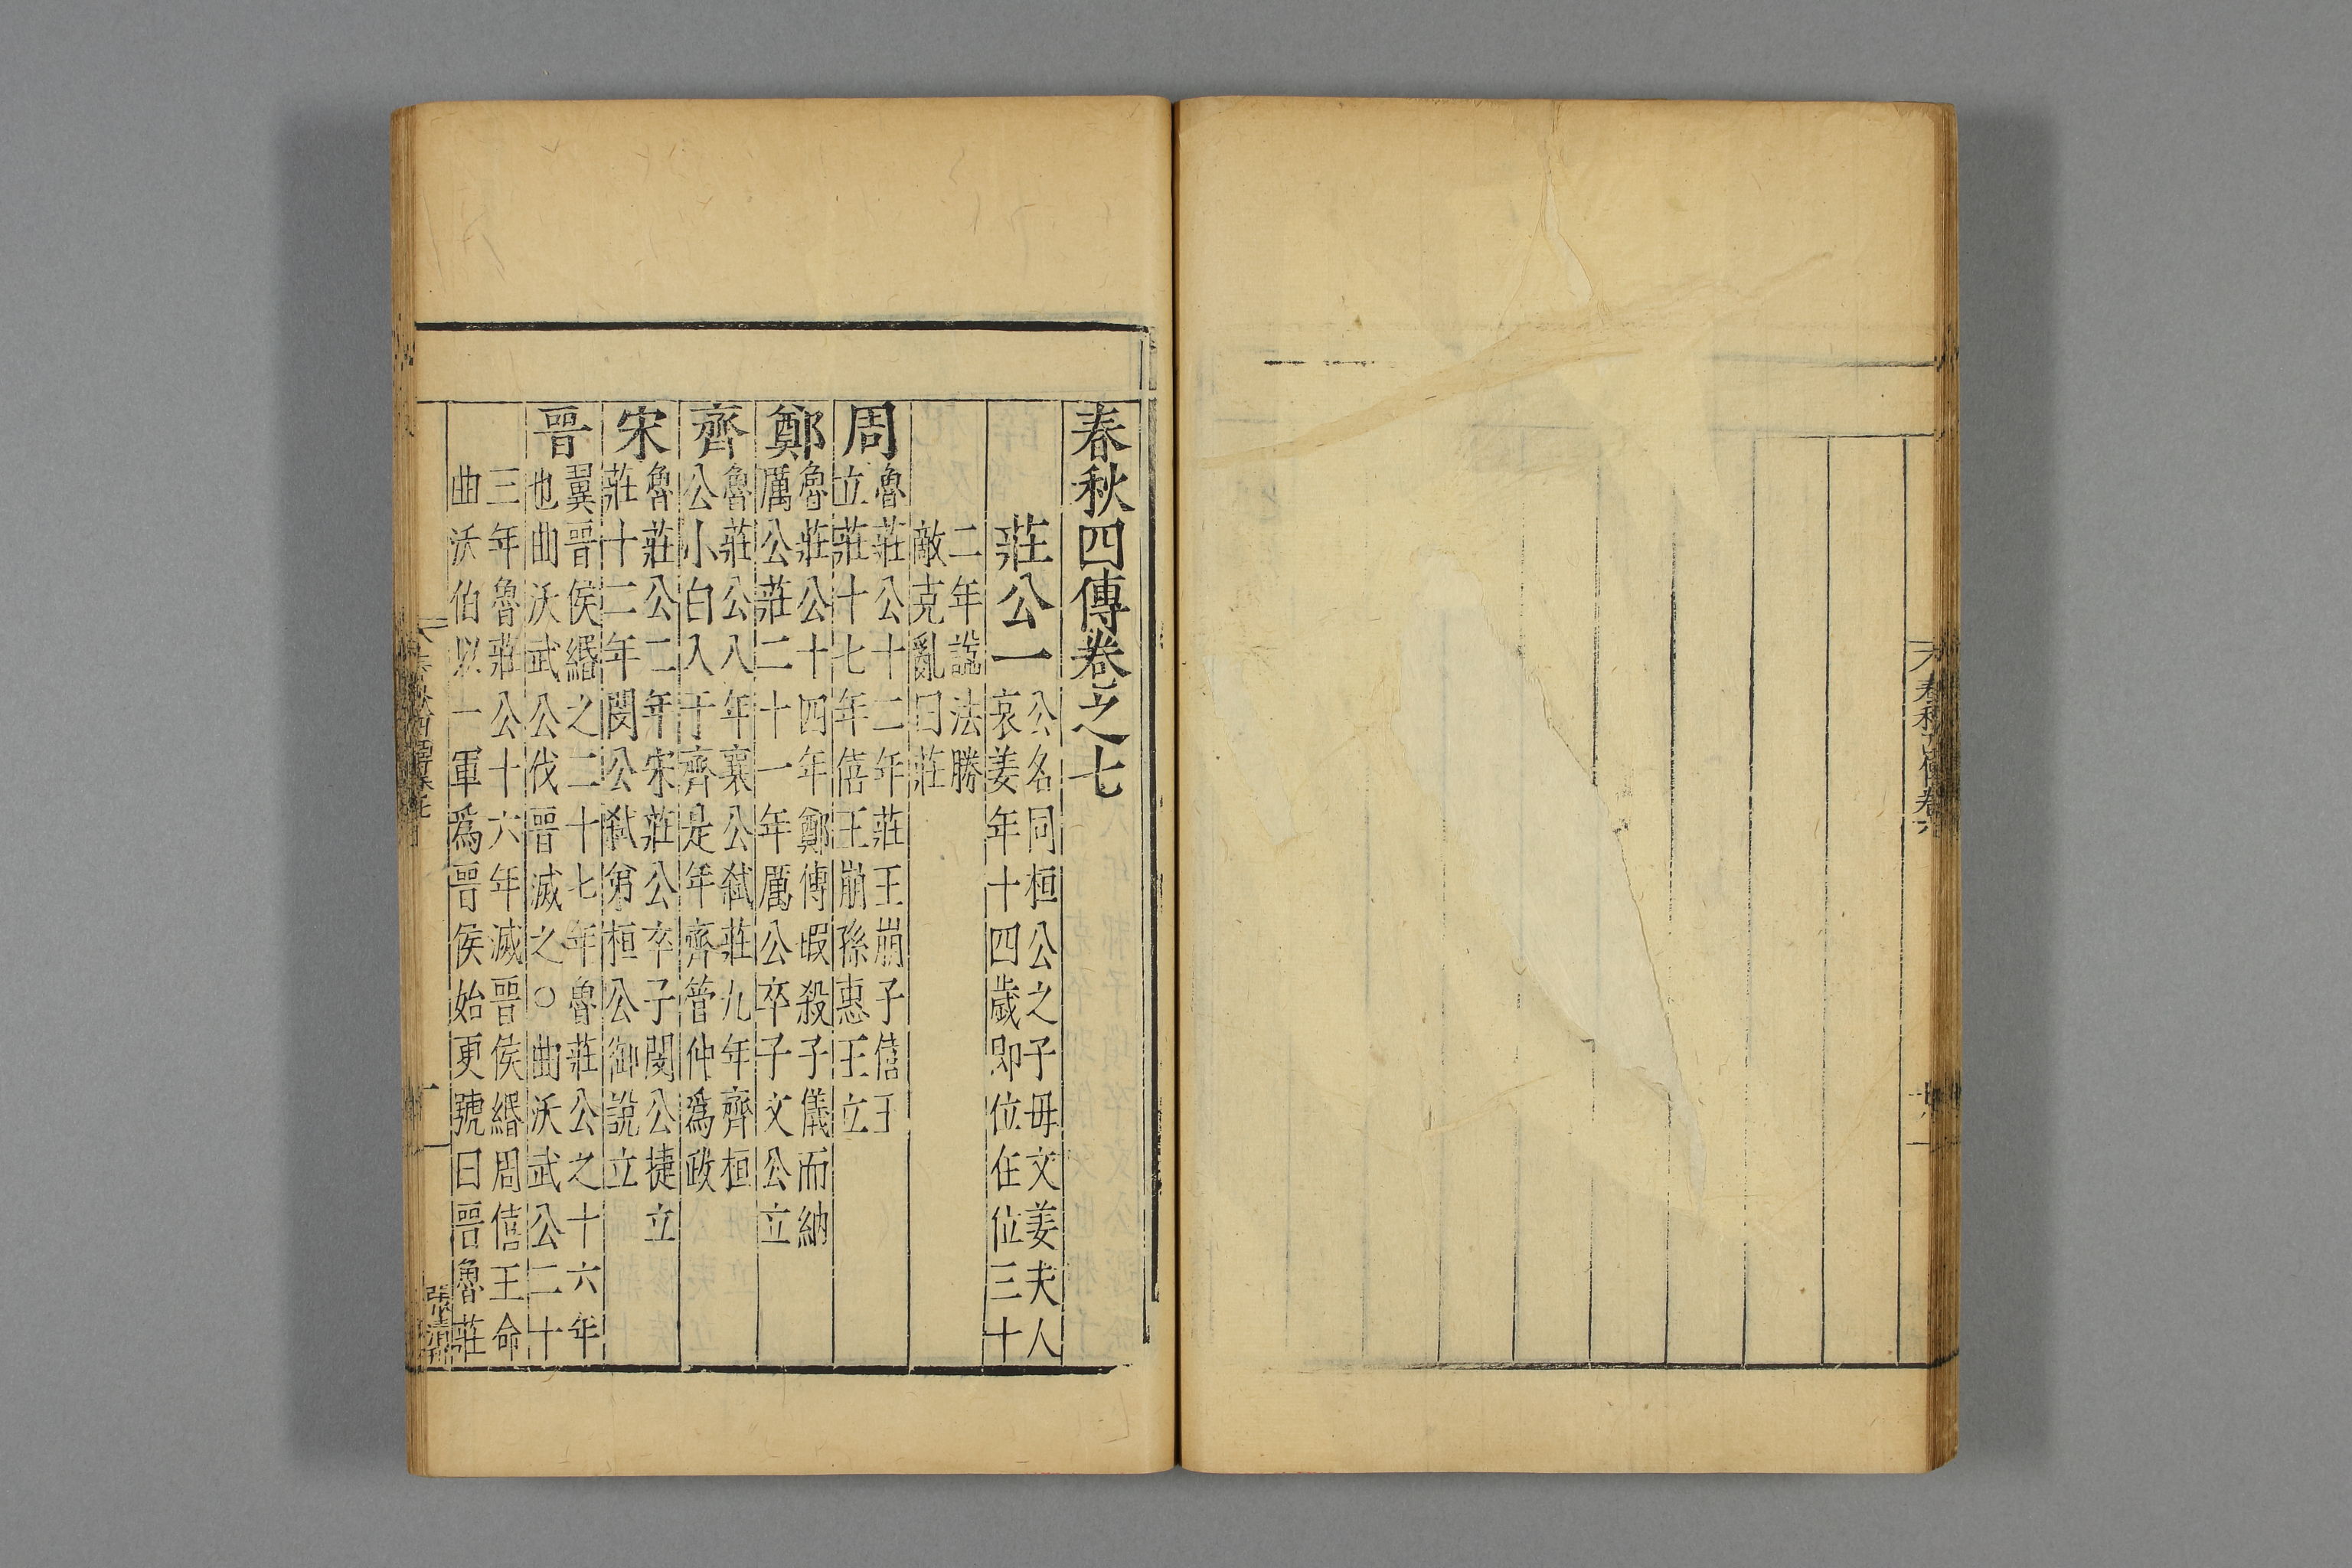 春秋四傳卷六
春秋四傳卷之七
莊公一
公名同桓公之子毋文姜夫人
哀姜年十四歲即位在位三十
二年諡法勝
敵克亂曰莊
周
魯莊公十二年莊王崩子僖王
立莊十七年僖王崩孫惠王立
鄭
魯莊公十四年鄭傅瑕殺子儀而納
厲公莊二十一年厲公卒子文公立
齊
魯莊公八年襄公弒莊九年齊桓
公小白入于齊是年齊管仲為政
宋
魯莊公二年宋莊公卒子閔公捷立
莊十二年閔公弒弟桓公御說立
晉
翼晉侯緡之二十七年魯莊公之十六年
也曲沃武公伐晉滅之○曲沃武公二十
三年魯莊公十六年滅晉侯緡周僖王命
曲沃伯以一軍為晉侯始更號曰晉魯莊